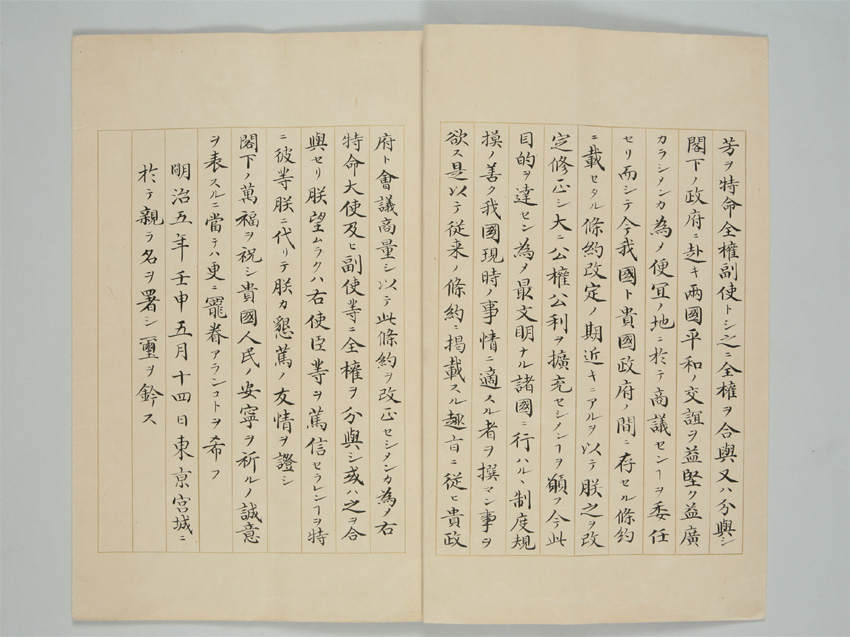 芳ヲ特命全權副使トシ之ニ全權ヲ合與又ハ分與シ
閣下ノ政府ニ赴キ兩國平和ノ交誼ヲ益堅ク益廣
カラシメンカ為メ便宜ノ地ニ於テ商議センヿヲ委任
セリ而シテ今我國ト貴國政府ノ間ニ存セル條約
ニ載セタル條約改定ノ期近キニアルヲ以テ朕之ヲ改
定修正シ大ニ公權公利ヲ擴充セシメンヿヲ願フ今此
目的ヲ達セン為メ最文明ナル諸國ニ行ハルヽ制度規
摸ノ善ク我國現時ノ事情ニ適スル者ヲ撰マン事ヲ
欲ス是以テ従来ノ條約ニ掲載スル趣旨ニ従ヒ貴政
府ト會議商量シ以テ此條約ヲ改正セシメンカ為メ右
特命大使及ヒ副使等ニ全權ヲ分與シ或ハ之ヲ合
與セリ朕望ムラクハ右使臣等ヲ篤信セラレンヿヲ特
ニ彼等朕ニ代リテ朕カ懇篤ノ友情ヲ證シ
閣下ノ萬福ヲ祝シ貴國人民ノ安寧ヲ祈ルノ誠意
ヲ表スルニ當テハ更ニ寵眷アランコトヲ希フ
明治五年壬申五月十四日東京宮城ニ
於テ親ラ名ヲ署シ璽ヲ鈐ス